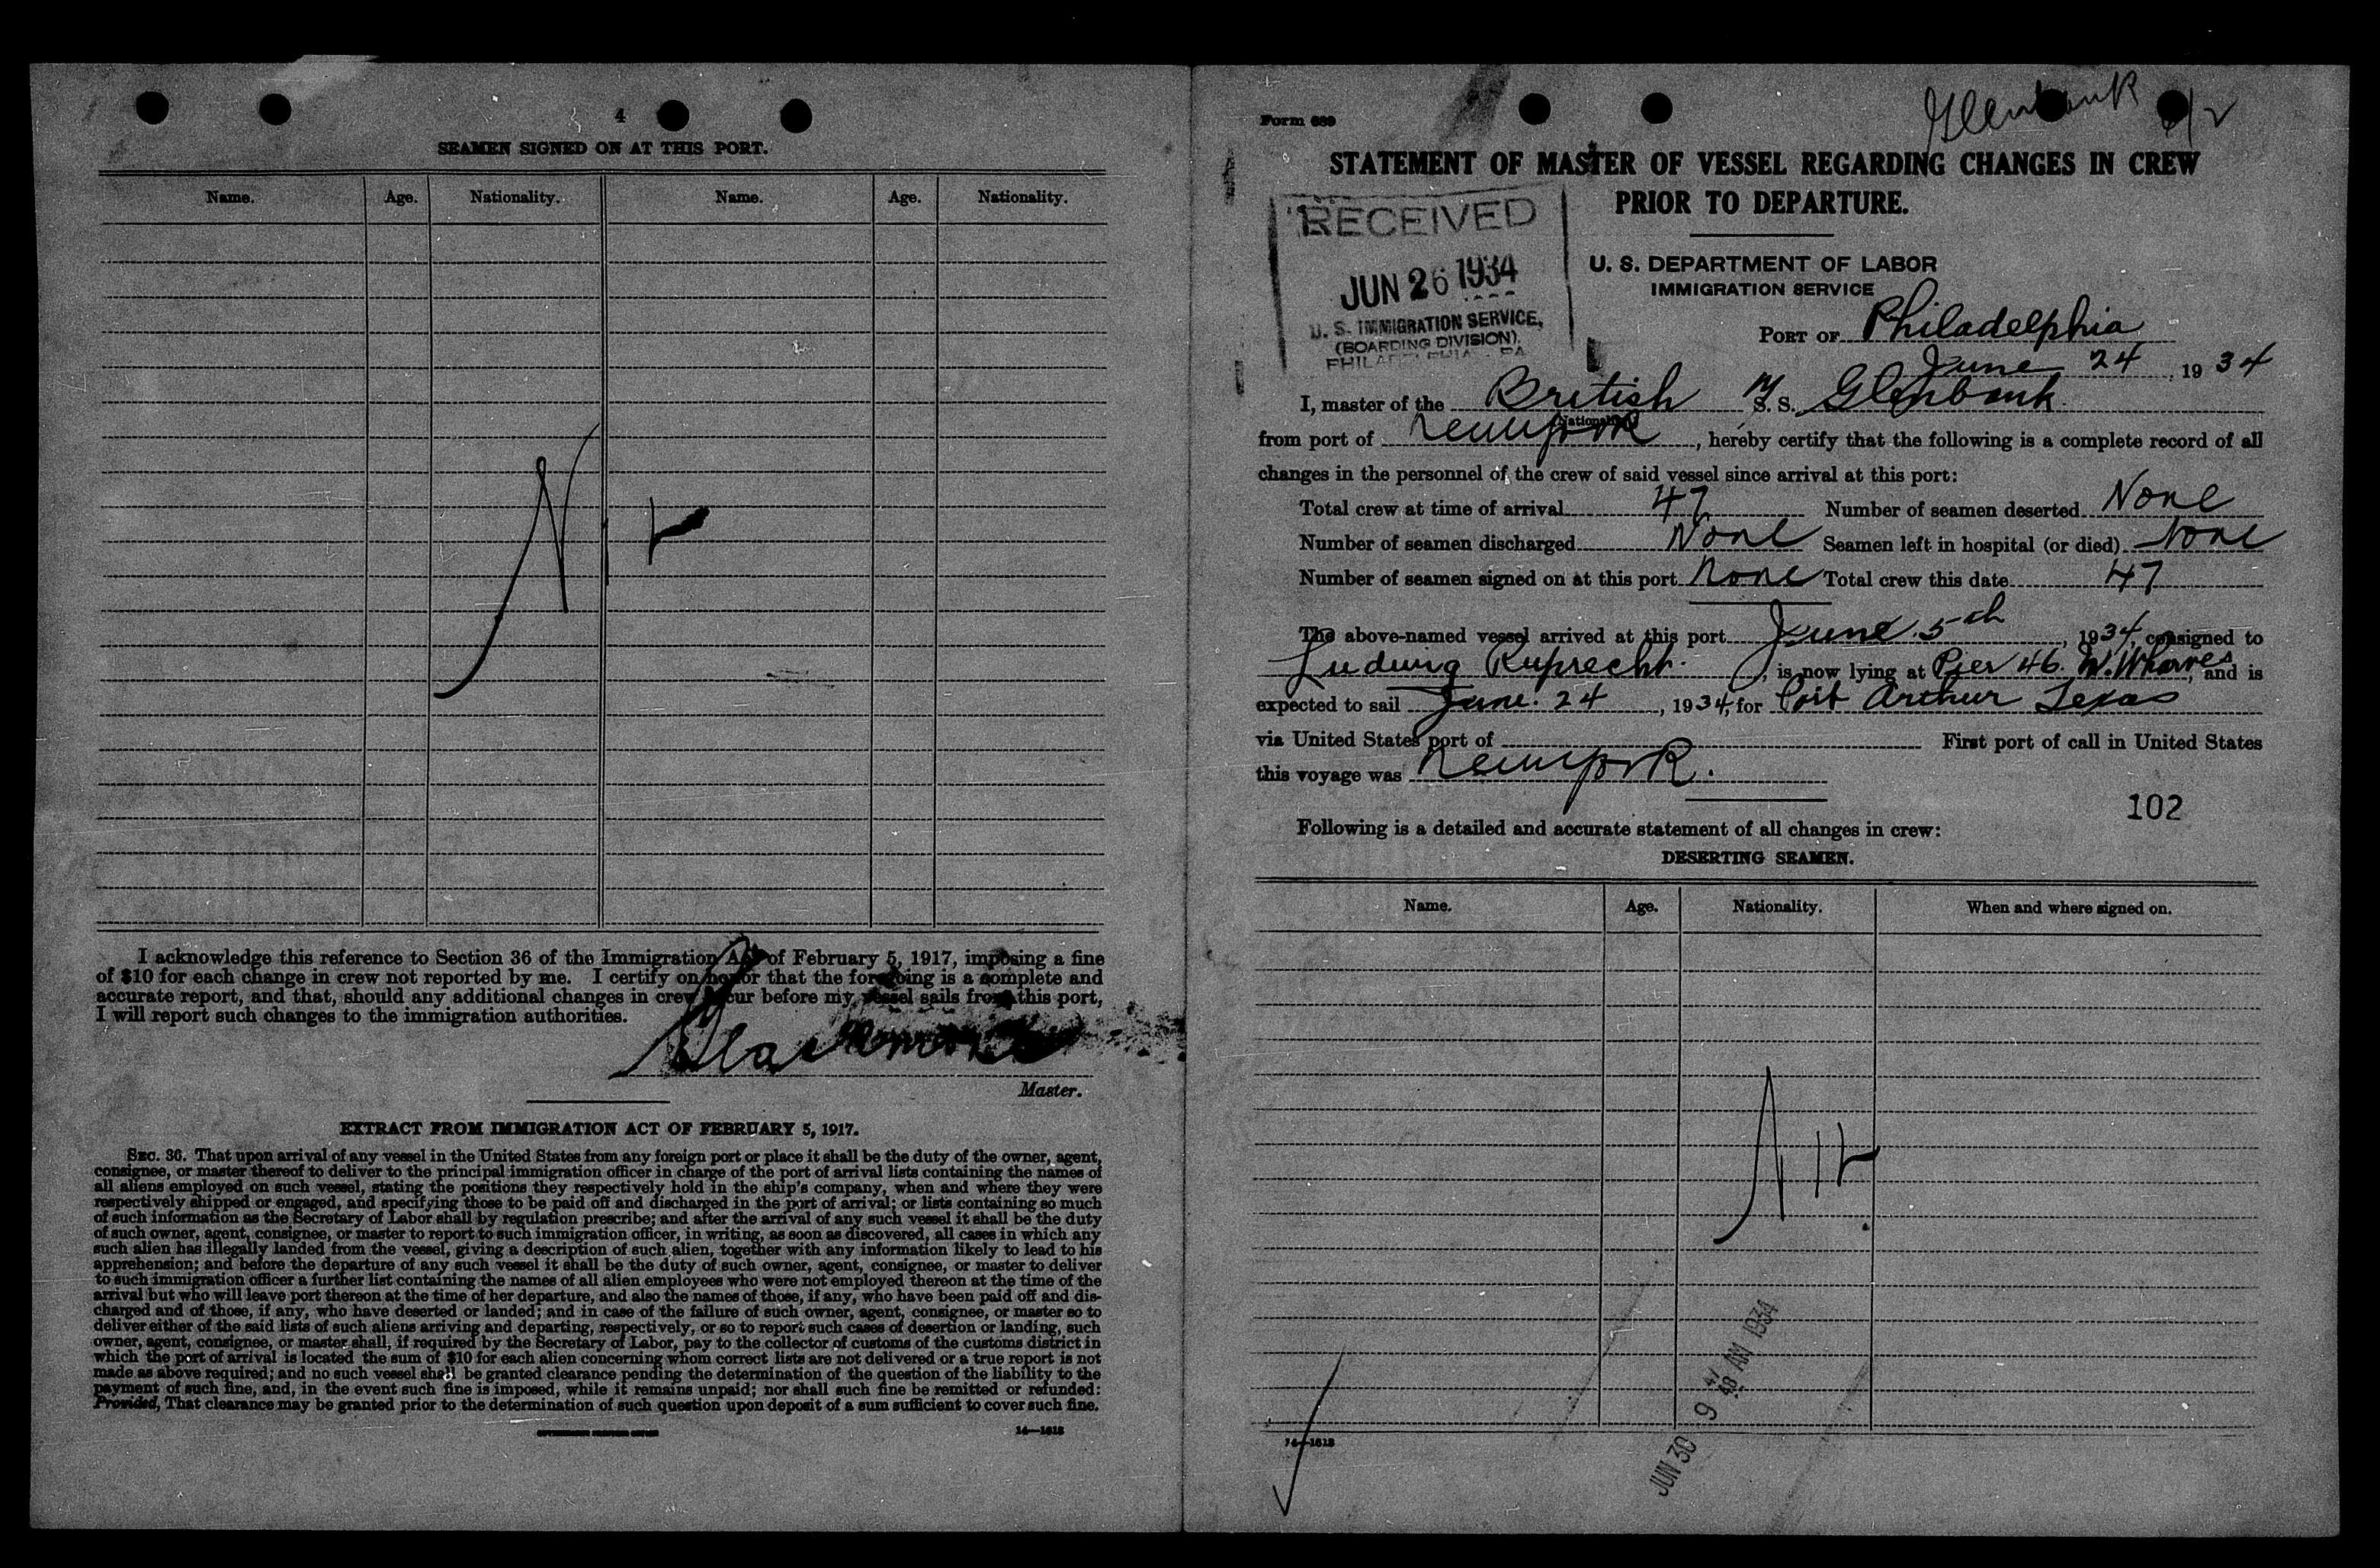 4
SEAMEN SIGNED ON AT THIS PORT.
Name. Age. Nationality. Name. Age. Nationality.
Nil
I acknowledge this reference to Section 36 of the Immigration Act of February 5, 1917, imposing a fine
of $10 for each change in crew not reported by me. I certify on honor that the foregoing is a complete and
accurate report, and that, should any additional changes in crew occur before my vessel sails from this port,
I will report such changes to the immigration authorities.
Master.
EXTRACT FROM IMMIGRATION ACT OF FEBRUARY 5, 1917.
SEC. 36. That upon arrival of any vessel in the United States from any foreign port or place it shall be the duty of the owner, agent,
consignee, or master thereof to deliver to the principal immigration officer in charge of the port of arrival lists containing the names of
all aliens employed on such vessel, stating the positions they respectively hold in the ship's company, when and where they were
respectively shipped or engaged, and specifying those to be paid off and discharged in the port of arrival; or lists containing so much
of such information as the Secretary of Labor shall by regulation prescribe; and after the arrival of any such vessel it shall be the duty
of such owner, agent, consignee, or master to report to such immigration officer, in writing, as soon as discovered, all cases in which any
such alien has illegally landed from the vessel, giving a description of such alien, together with any information likely to lead to his
apprehension; and before the departure of any such vessel it shall be the duty of such owner, agent, consignee, or master to deliver
to such immigration officer a further list containing the names of all alien employees who were not employed thereon at the time of the
arrival but who will leave port thereon at the time of her departure, and also the names of those, if any, who have been paid off and dis-
charged and of those, if any, who have deserted or landed; and in case of the failure of such owner, agent, consignee, or master so to
deliver either of the said lists of such aliens arriving and departing, respectively, or so to report such cases of desertion or landing, such
owner, agent, consignee, or master shall, if required by the Secretary of Labor, pay to the collector of customs of the customs district in
which the port of arrival is located the sum of $10 for each alien concerning whom correct lists are not delivered or a true report is not
made as above required; and no such vessel shall be granted clearance pending the determination of the question of the liability to the
payment of such fine, and, in the event such fine is imposed, while it remains unpaid; nor shall such fine be remitted or refunded:
Provided, That clearance may be granted prior to the determination of such question upon deposit of a sum sufficient to cover such fine.
14—1613
Glenbank
Form 689
STATEMENT OF MASTER OF VESSEL REGARDING CHANGES IN CREW
PRIOR TO DEPARTURE.
RECEIVED
JUN 26 1934
U. S. IMMIGRATION SERVICE,
(BOARDING DIVISION)
PHILADELPHIA - PA
U. S. DEPARTMENT OF LABOR
IMMIGRATION SERVICE
PORT OF Philadelphia
June 24, 1934
I, master of the British M S. S. Glenbank
(Nationality)
from port of Newyork, hereby certify that the following is a complete record of all
changes in the personnel of the crew of said vessel since arrival at this port:
Total crew at time of arrival 47 Number of seamen deserted None
Number of seamen discharged None Seamen left in hospital (or died) None
Number of seamen signed on at this port None Total crew this date 47
The above-named vessel arrived at this port June 5th, 1934, consigned to
Ludwig Ruprecht., is now lying at Pier 46. W. Wharves, and is
expected to sail June. 24, 1934, for Port Arthur Texas
via United States port of First port of call in United States
this voyage was Newyork.
102
Following is a detailed and accurate statement of all changes in crew:
DESERTING SEAMEN.
Name. Age. Nationality. When and where signed on.
Nil
JUN 30 9 AM 1934
14—1613